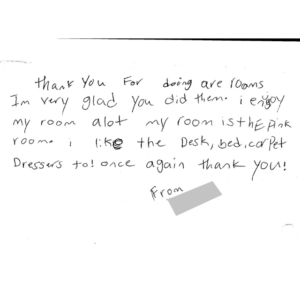 thank You For doing are rooms
Im very glad you did them. i enjoy
my room alot my room is thE Pink
room. i like the Desk, bed, carPet
Dressers to! once again thank you!
From